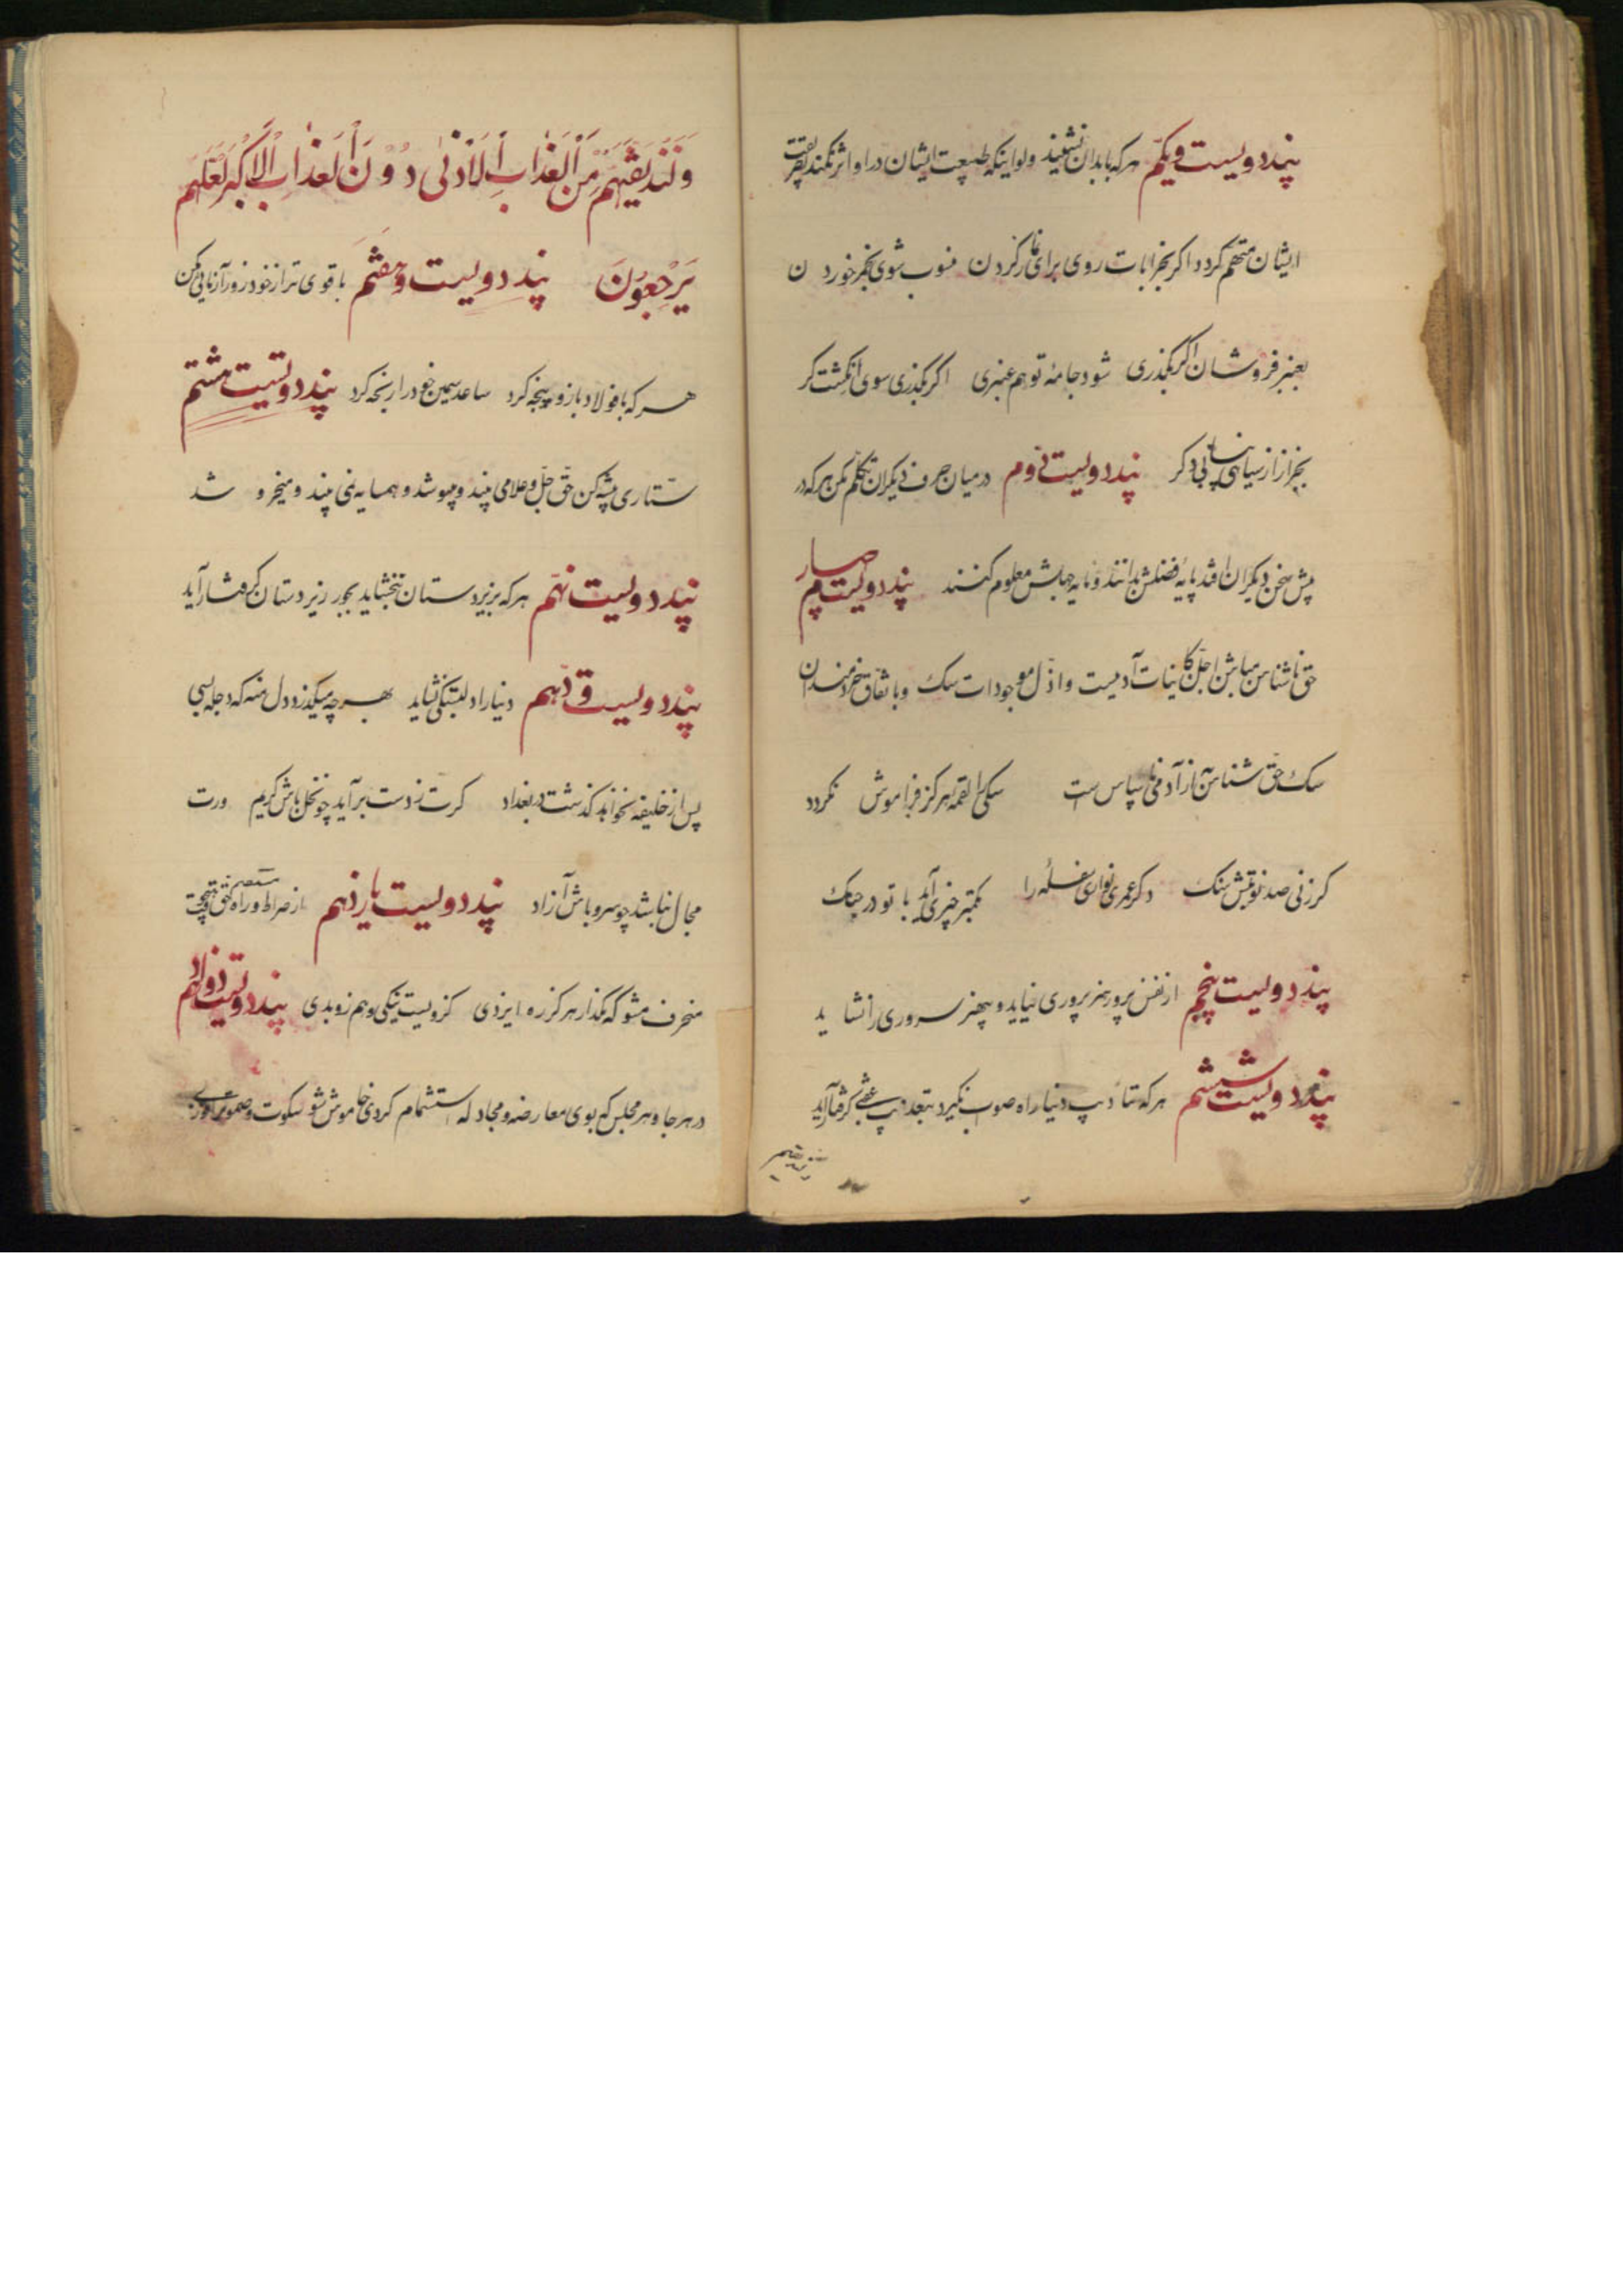 پند دویست و یکم هر که با بدان نشیند ولو اینکه طبیعت ایشان در او اثر نکند بطریقت
ایشان متهم گردد اگر بخرابات روی برای نماز کردن منسوب شوی بخمر خوردن
بعنبر فروشان اگر بگذری شود جامهٔ تو هم عنبری اگر بگذری سوی انگشت گر
بجز از سیاهی نیابی دگر پند دویست و دوم در میان حرف دیگران تکلم مکن هر که در
پیش سخن دیگران افتد پایهٔ فضلش ندانند و مایه جهلش معلوم کنند پند دویست چهارم
حق ناشناس مباش اجلّ کاینات آدمیست و اذلّ موجودات سگ و باتفاق خردمندان
سگ حق شناس به از آدمی ناسپاس است سگی را لقمه هرگز فراموش نگردد
گر زنی صد نوبتش سنگ وگر عمری نوازی سفله را بکمتر چیزی آید با تو در جنگ
پند دویست پنجم از نفس پرور هنر پروری نیاید و بیهنر سروری را نشاید
پند دویست ششم هر که بتادیب دنیا راه صواب نگیرد بتعذیب عقبی گرفتار آید
وَلَنُذِیقَنَّهُمْ مِنَ الْعَذَابِ الْاَدْنٰی دُوْنَ الْعَذَابِ الْاَکْبَرِ لَعَلَّهُمْ
یَرْجِعُونَ پند دویست و هفتم با قوی تر از خود زور آزمایی مکن
هر که با فولاد بازو پنجه کرد ساعد سیمین خود را رنجه کرد پند دویست هشتم
ستاری پیشه کن حق جلّ و علا می بیند و میپوشد و همسایه نمی بیند و میخروشد
پند دویست نهم هر که بر زیردستان نبخشاید بجور زبردستان گرفتار آید
پند دویست و دهم دنیا را دلبستگی نشاید بهر چه میگذرد دل منه که دجله بسی
پس از خلیفه بخواهد گذشت در بغداد گرت ز دست برآید چو نخل باش کریم ورت
مجال نباشد چو سرو باش آزاد پند دویست یازدهم از صراط مستقیم و راه حق هیچوقت
منحرف مشو که مگذار هرگز ره ایزدی کزویست نیکی و هم زو بدی پند دویست دوازدهم
در هر جا و هر مجلس که بوی معارضه و مجادله استشمام کردی خاموش شو سکوت و